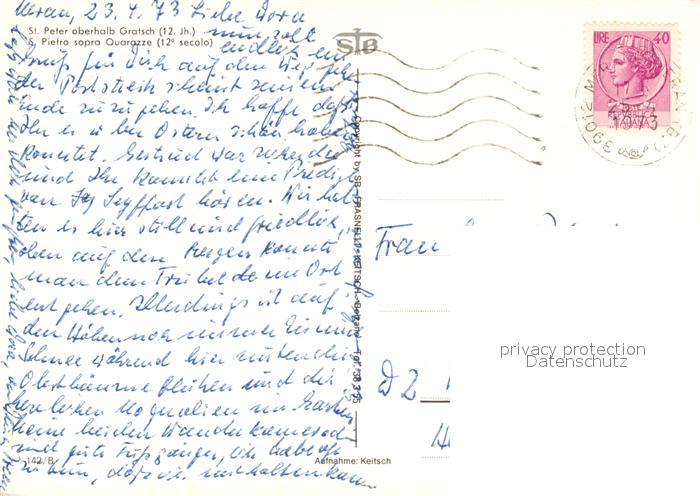 Meran, 23.4.73 Liebe Dora
St. Peter oberhalb Gratsch (12. Jh.)
S. Pietro sopra Quarazze (12º secolo)
nun soll
endlich ein
Gruß für Dich auf den Weg gehen
der Poststreik scheint seinem
Ende zuzugehen. Ich hoffe daß
Ihr es über Ostern schön haben
konntet. Gertrud war
und Ihr konntet eine Predigt
von hören. Wir hat-
ten es hier still und friedlich,
oben auf den Bergen konnte
man dem Trubel im Ort
entgehen. Allerdings ist auf
den Höhen noch immer Eis und
Schnee während hier unten die
Obstbäume blühen und die
herrlichen Magnolien im Garten
meine beiden Wanderkameraden
sind gute Fußgänger, ich habe oft
zu tun, daß ich mithalten kann.
142/B
Aufnahme: Keitsch
STB
Copyright by SB. FRASNELLI-KEITSCH - Bolzano - Tel.
LIRE 40
REPUBBLICA
ITALIANA
39012
Frau
D2
privacy protection
Datenschutz